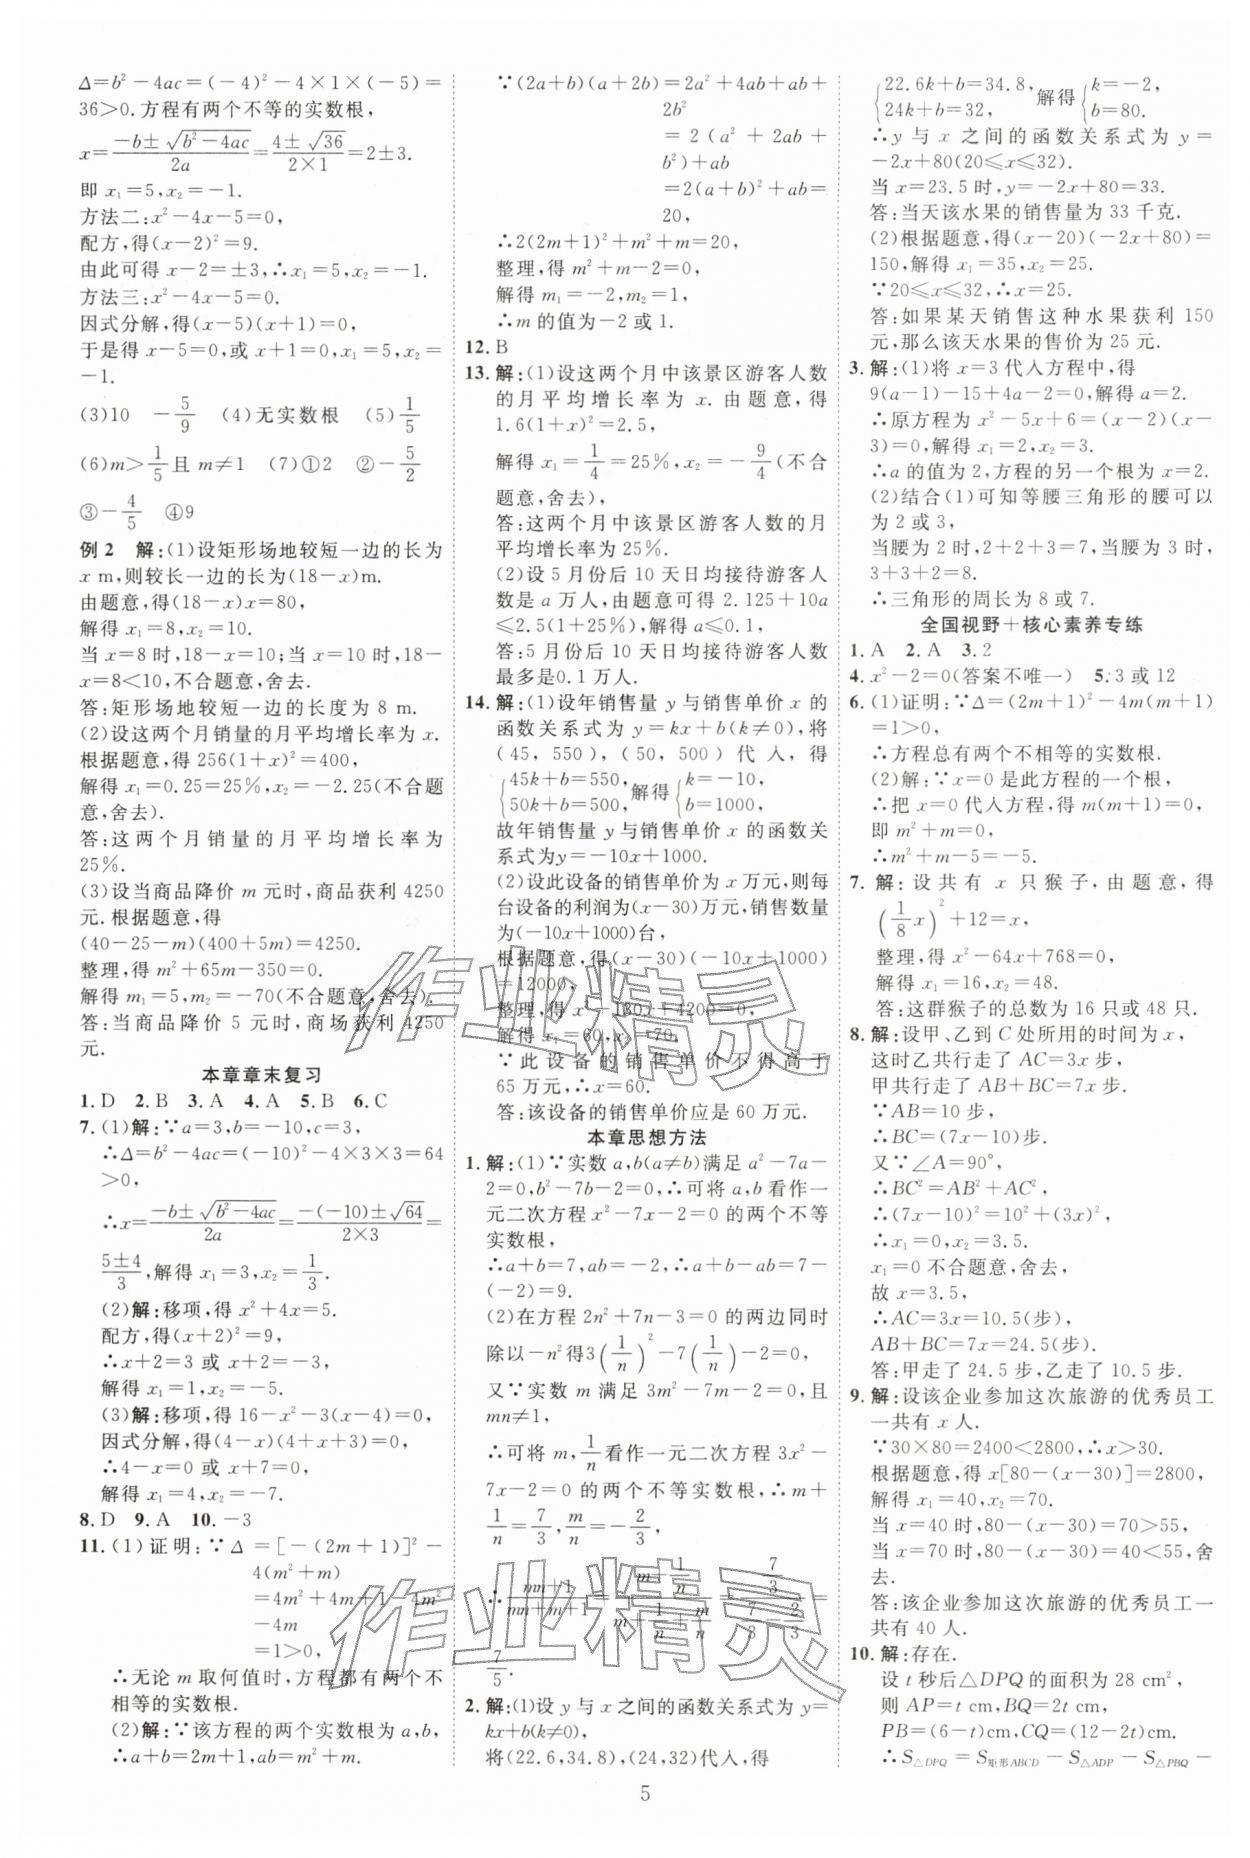 Δ=b²-4ac=(-4)²-4×1×(-5)=
36>0.方程有两个不等的实数根，
x=(-b±√(b²-4ac))/(2a)=(4±√36)/(2×1)=2±3.
即 x₁=5,x₂=-1.
方法二:x²-4x-5=0,
配方,得(x-2)²=9.
由此可得 x-2=±3,∴x₁=5,x₂=-1.
方法三:x²-4x-5=0.
因式分解,得(x-5)(x+1)=0,
于是得 x-5=0,或 x+1=0,x₁=5,x₂=
-1.
(3)10 -5/9 (4)无实数根 (5)1/5
(6)m>1/5且 m≠1 (7)①2 ②-5/2
③-4/5 ④9
例2 解:(1)设矩形场地较短一边的长为
x m,则较长一边的长为(18-x)m.
由题意,得(18-x)x=80,
解得 x₁=8,x₂=10.
当 x=8 时,18-x=10;当 x=10 时,18
-x=8<10,不合题意,舍去.
答:矩形场地较短一边的长度为 8 m.
(2)设这两个月销量的月平均增长率为 x.
根据题意,得 256(1+x)²=400,
解得 x₁=0.25=25%,x₂=-2.25(不合题
意,舍去).
答:这两个月销量的月平均增长率为
25%.
(3)设当商品降价 m 元时,商品获利 4250
元.根据题意,得
(40-25-m)(400+5m)=4250.
整理,得 m²+65m-350=0.
解得 m₁=5,m₂=-70(不合题意,舍去).
答:当商品降价 5 元时,商场获利 4250
元.
本章章末复习
1. D 2. B 3. A 4. A 5. B 6. C
7. (1)解:∵a=3,b=-10,c=3,
∴Δ=b²-4ac=(-10)²-4×3×3=64
>0,
∴x=(-b±√(b²-4ac))/(2a)=(-(-10)±√64)/(2×3)=
(5±4)/3,解得 x₁=3,x₂=1/3.
(2)解:移项,得 x²+4x=5.
配方,得(x+2)²=9,
∴x+2=3 或 x+2=-3,
解得 x₁=1,x₂=-5.
(3)解:移项,得 16-x²-3(x-4)=0,
因式分解,得(4-x)(4+x+3)=0,
∴4-x=0 或 x+7=0,
解得 x₁=4,x₂=-7.
8. D 9. A 10. -3
11. (1)证明:∵Δ=[-(2m+1)]²-
4(m²+m)
=4m²+4m+1-4m²
-4m
=1>0,
∴无论 m 取何值时,方程都有两个不
相等的实数根.
(2)解:∵该方程的两个实数根为 a,b,
∴a+b=2m+1,ab=m²+m.
∵(2a+b)(a+2b)=2a²+4ab+ab+
2b²
=2(a²+2ab+
b²)+ab
=2(a+b)²+ab=
20,
∴2(2m+1)²+m²+m=20,
整理,得 m²+m-2=0,
解得 m₁=-2,m₂=1,
∴m 的值为-2或 1.
12. B
13. 解:(1)设这两个月中该景区游客人数
的月平均增长率为 x.由题意,得
1.6(1+x)²=2.5,
解得 x₁=1/4=25%,x₂=-9/4(不合
题意,舍去),
答:这两个月中该景区游客人数的月
平均增长率为 25%.
(2)设 5 月份后 10 天日均接待游客人
数是 a 万人,由题意可得 2.125+10a
≤2.5(1+25%),解得 a≤0.1,
答:5 月份后 10 天日均接待游客人数
最多是0.1 万人.
14. 解:(1)设年销售量 y 与销售单价 x 的
函数关系式为 y=kx+b(k≠0),将
(45,550),(50,500)代入,得
{45k+b=550, 50k+b=500, 解得{k=-10, b=1000,
故年销售量 y 与销售单价 x 的函数关
系式为y=-10x+1000.
(2)设此设备的销售单价为 x 万元,则每
台设备的利润为(x-30)万元,销售数量
为(-10x+1000)台,
根据题意,得(x-30)(-10x+1000)
=12000,
整理,得 x²-130x+4200=0,
解得 x₁=60,x₂=70.
∵此设备的销售单价不得高于
65 万元,∴x=60.
答:该设备的销售单价应是 60 万元.
本章思想方法
1. 解:(1)∵实数 a,b(a≠b)满足 a²-7a-
2=0,b²-7b-2=0,∴可将 a,b 看作一
元二次方程 x²-7x-2=0 的两个不等
实数根,
∴a+b=7,ab=-2,∴a+b-ab=7-
(-2)=9.
(2)在方程 2n²+7n-3=0 的两边同时
除以-n²得3(1/n)²-7(1/n)-2=0,
又∵实数 m 满足 3m²-7m-2=0,且
mn≠1,
∴可将 m,1/n看作一元二次方程 3x²-
7x-2=0 的两个不等实数根,∴m+
1/n=7/3,m/n=-2/3,
∴(mn+1)/(mn+m+1)=(m+1/n)/(m+1/n+m/n)=(7/3)/(7/3-2/3)=
7/5.
2. 解:(1)设 y 与 x 之间的函数关系式为 y=
kx+b(k≠0),
将(22.6,34.8),(24,32)代入,得
{22.6k+b=34.8, 24k+b=32, 解得{k=-2, b=80.
∴y 与 x 之间的函数关系式为 y=
-2x+80(20≤x≤32).
当 x=23.5 时,y=-2x+80=33.
答:当天该水果的销售量为 33 千克.
(2)根据题意,得(x-20)(-2x+80)=
150,解得 x₁=35,x₂=25.
∵20≤x≤32,∴x=25.
答:如果某天销售这种水果获利 150
元,那么该天水果的售价为 25 元.
3. 解:(1)将 x=3代入方程中,得
9(a-1)-15+4a-2=0,解得 a=2.
∴原方程为 x²-5x+6=(x-2)(x-
3)=0,解得 x₁=2,x₂=3.
∴a 的值为 2,方程的另一个根为 x=2.
(2)结合(1)可知等腰三角形的腰可以
为 2 或 3,
当腰为 2 时,2+2+3=7,当腰为 3 时,
3+3+2=8.
∴三角形的周长为 8 或 7.
全国视野+核心素养专练
1. A 2. A 3. 2
4. x²-2=0(答案不唯一) 5. 3 或 12
6. (1)证明:∵Δ=(2m+1)²-4m(m+1)
=1>0,
∴方程总有两个不相等的实数根.
(2)解:∵x=0 是此方程的一个根,
∴把 x=0 代入方程,得 m(m+1)=0,
即 m²+m=0,
∴m²+m-5=-5.
7. 解:设共有 x 只猴子,由题意,得
(1/8 x)²+12=x,
整理,得 x²-64x+768=0,
解得 x₁=16,x₂=48.
答:这群猴子的总数为 16 只或 48 只.
8. 解:设甲、乙到 C 处所用的时间为 x,
这时乙共行走了 AC=3x 步,
甲共行走了 AB+BC=7x 步.
∵AB=10 步,
∴BC=(7x-10)步.
又∵∠A=90°,
∴BC²=AB²+AC²,
∴(7x-10)²=10²+(3x)²,
∴x₁=0,x₂=3.5.
x₁=0 不合题意,舍去,
故 x=3.5,
∴AC=3x=10.5(步),
AB+BC=7x=24.5(步).
答:甲走了 24.5 步,乙走了 10.5 步.
9. 解:设该企业参加这次旅游的优秀员工
一共有 x 人.
∵30×80=2400<2800,∴x>30.
根据题意,得 x[80-(x-30)]=2800,
解得 x₁=40,x₂=70.
当 x=40 时,80-(x-30)=70>55,
当 x=70 时,80-(x-30)=40<55,舍
去.
答:该企业参加这次旅游的优秀员工一
共有 40 人.
10. 解:存在.
设 t 秒后△DPQ 的面积为 28 cm²,
则 AP=t cm,BQ=2t cm,
PB=(6-t)cm,CQ=(12-2t)cm.
∴S△DPQ=S矩形ABCD-S△ADP-S△PBQ-
5
作业精灵
作业精灵